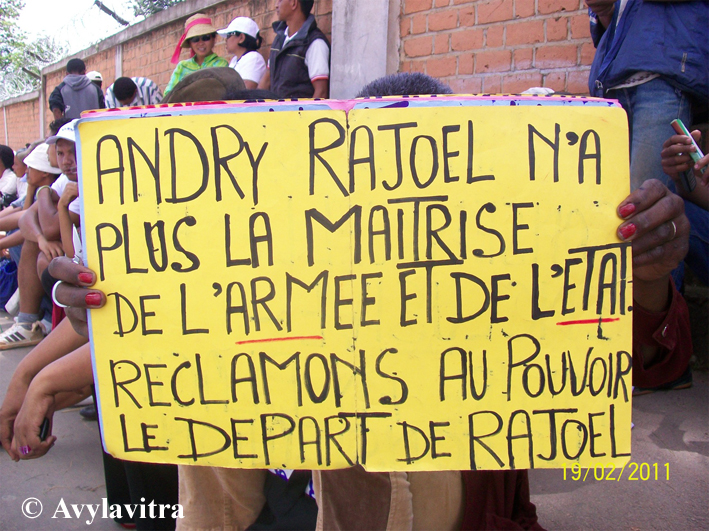 ANDRY RAJOEL N'A
PLUS LA MAITRISE
DE L'ARMEE ET DE L'ETAT.
RECLAMONS AU POUVOIR
LE DEPART DE RAJOEL
19/02/2011
© Avylavitra